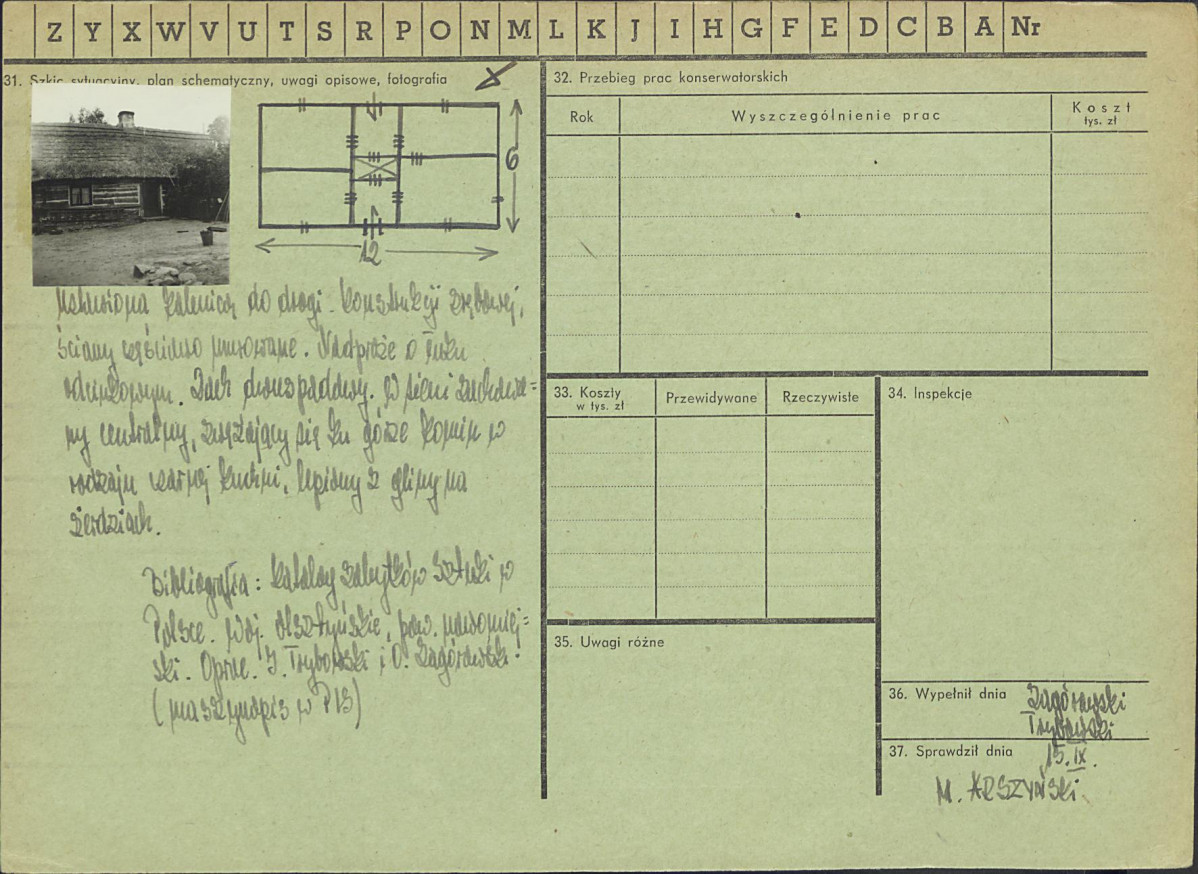 Z Y X W V U T S R P O N M L K J I H G F E D C B A Nr
31. Szkic sytuacyjny, plan schematyczny, uwagi opisowe, fotografia
6
12
Ustawiona kalenicą do drogi. Konstrukcji zrębowej,
ściany częściowo murowane. Nadproże o łuku
odcinkowym. Dach dwuspadowy. W sieni zachowa=
ny centralny, zwężający się ku górze komin w
rodzaju czarnej kuchni, lepiony z gliny na
żerdziach.
Bibliografia: Katalog Zabytków Sztuki w
Polsce. Woj. olsztyńskie, pow. nowomiej=
ski. Oprac. J. Trybowski i O. Zagórowski.
(maszynopis w PIS)
32. Przebieg prac konserwatorskich
Rok Wyszczególnienie prac Koszt
tys. zł
33. Koszty
w tys. zł
Przewidywane Rzeczywiste
34. Inspekcje
35. Uwagi różne
36. Wypełnił dnia Zagórowski
Trybowski
37. Sprawdził dnia 15. IX.
M. ARSZYŃSKI